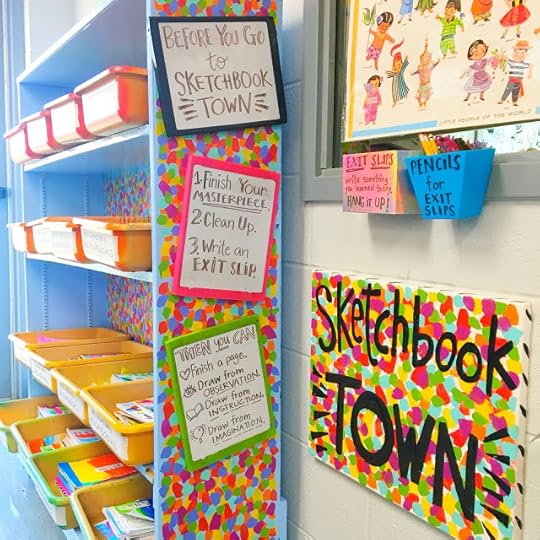 BEFORE YOU
GO to
SKETCHBOOK
TOWN
1. Finish Your
MASTERPIECE.
2. Clean Up.
3. Write an
EXIT SLIP.
THEN YOU CAN
Finish a page.
Draw from
OBSERVATION.
Draw from
INSTRUCTION.
Draw from
IMAGINATION.
LITTLE PEOPLE OF THE WORLD
EXIT SLIPS
write something
you learned today,
HANG IT UP!
PENCILS
for
EXIT
SLIPS
Sketchbook
TOWN